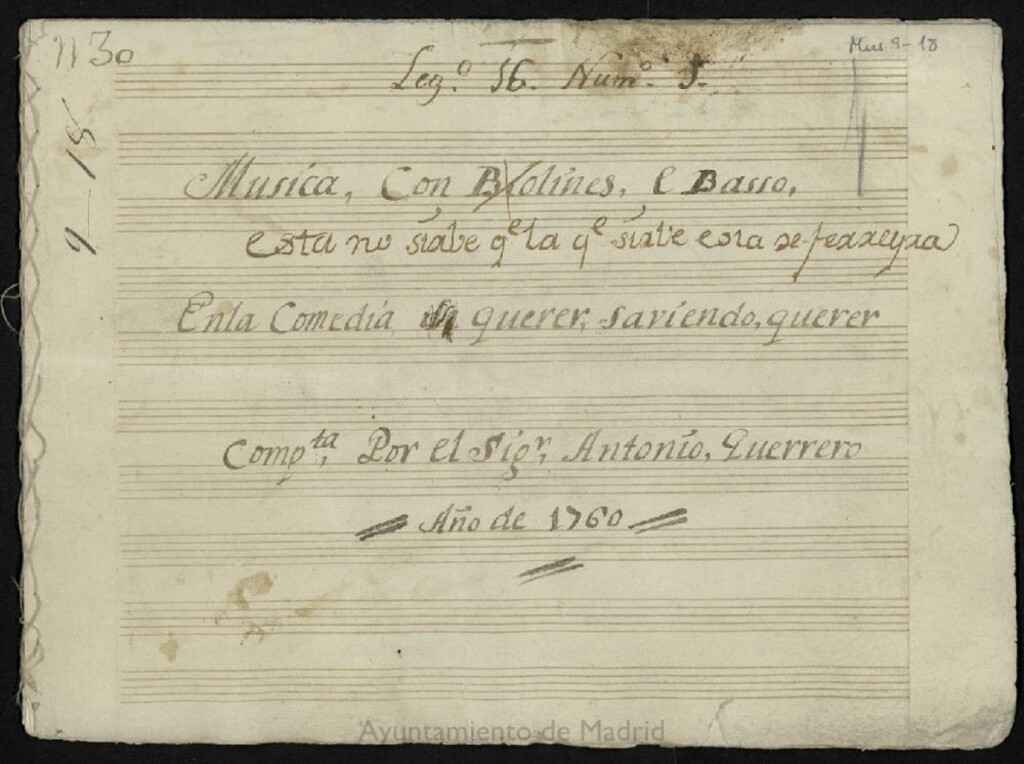 n 30
Mus 9-18
Leg.º 16. Num.º 1.
9-18
Musica, Con Biolines, e Basso,
esta no sirbe qe la qe sirbe es la de ferreyra
En la Comedia querer, saviendo, querer
Compta, Por el Sigr, Antonio, Guerrero
Año de 1760
Ayuntamiento de Madrid